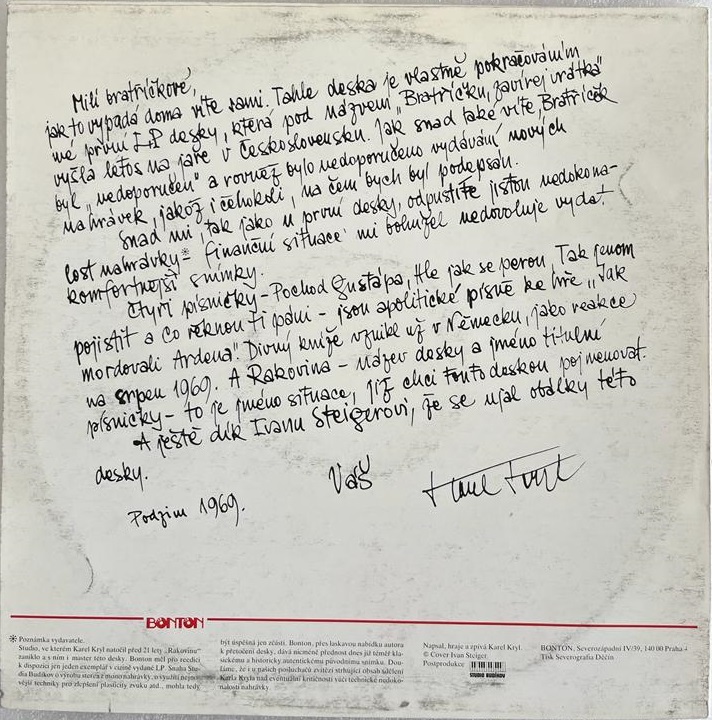 Milí bratříčkové,
jak to vypadá doma víte sami. Tahle deska je vlastně pokračováním
mé první LP desky, která pod názvem „Bratříčku, zavírej vrátka"
vyšla letos na jaře v Československu. Jak snad také víte, Bratříček
byl „nedoporučen" a rovněž bylo nedoporučeno vydávání nových
nahrávek, jakož i čehokoli, na čem bych byl podepsán.
Snad mi, tak jako u první desky, odpustíte jistou nedokona-
lost nahrávky* finanční situace mi bohužel nedovoluje vydat
komfortnější snímky.
Čtyři písničky – Pochod Gustapa, Hle jak se perou, Tak jenom
pojistit a Co řeknou ti páni – jsou apolitické písně ke hře „Jak
mordovali Ardena". Divný kníže vznikl už v Německu, jako reakce
na srpen 1969. A Rakovina – název desky a jméno titulní
písničky – to je jméno situace, jíž chci touto deskou pojmenovat.
A ještě dík Ivanu Steigerovi, že se ujal obálky této
desky.
Váš Karel Kryl
Podzim 1969.
BONTON
* Poznámka vydavatele.
Studio, ve kterém Karel Kryl natočil před 21 lety „Rakovinu"
zaniklo a s ním i master této desky. Bonton měl pro reedici
k dispozici jen jeden exemplář v cizině vydané LP. Snaha Stu-
dia Budíkov o výrobu sterea z mononahrávky, o využití nejno-
vější techniky pro zlepšení plasticity zvuku atd., mohla tedy
být úspěšná jen zčásti. Bonton, přes laskavou nabídku autora
k přetočení desky, dává nicméně přednost dnes již téměř kla-
sickému a historicky autentickému původnímu snímku. Dou-
fáme, že i u našich posluchačů zvítězí strhující obsah sdělení
Karla Kryla nad eventuální kritičností vůči technické nedoko-
nalosti nahrávky.
Napsal, hraje a zpívá Karel Kryl.
© Cover Ivan Steiger
Postprodukce
STUDIO BUDÍKOV
BONTON, Severozápadní IV/39, 140 00 Praha 4
Tisk Severografia Děčín